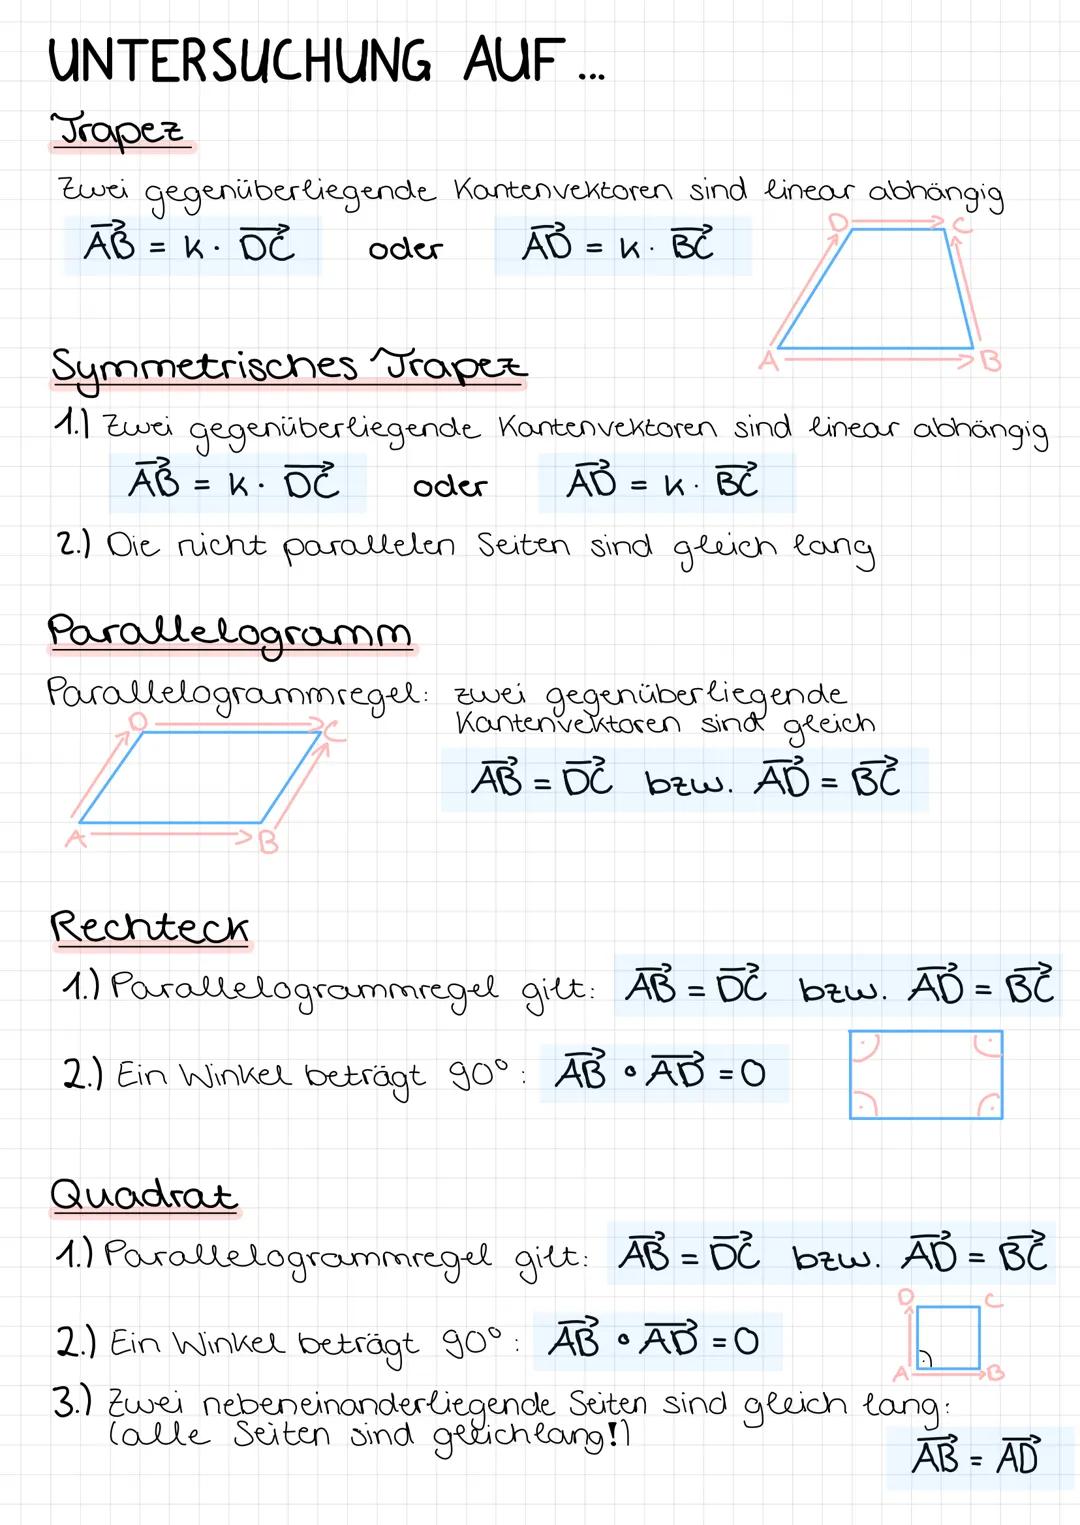 UNTERSUCHUNG AUF...
Trapez
Zwei gegenüberliegende Kantenvektoren sind linear abhängig
AB⃗ = k · DC⃗ oder AD⃗ = k · BC⃗
D C
A B
Symmetrisches Trapez
1.) Zwei gegenüberliegende Kantenvektoren sind linear abhängig
AB⃗ = k · DC⃗ oder AD⃗ = k · BC⃗
2.) Die nicht parallelen Seiten sind gleich lang
Parallelogramm
Parallelogrammregel: zwei gegenüberliegende
Kantenvektoren sind gleich
D C
AB⃗ = DC⃗ bzw. AD⃗ = BC⃗
A B
Rechteck
1.) Parallelogrammregel gilt: AB⃗ = DC⃗ bzw. AD⃗ = BC⃗
2.) Ein Winkel beträgt 90°: AB⃗ ∘ AD⃗ = 0
Quadrat
1.) Parallelogrammregel gilt: AB⃗ = DC⃗ bzw. AD⃗ = BC⃗
D C
2.) Ein Winkel beträgt 90°: AB⃗ ∘ AD⃗ = 0
A B
3.) Zwei nebeneinanderliegende Seiten sind gleich lang:
(alle Seiten sind gleichlang!)
AB⃗ = AD⃗